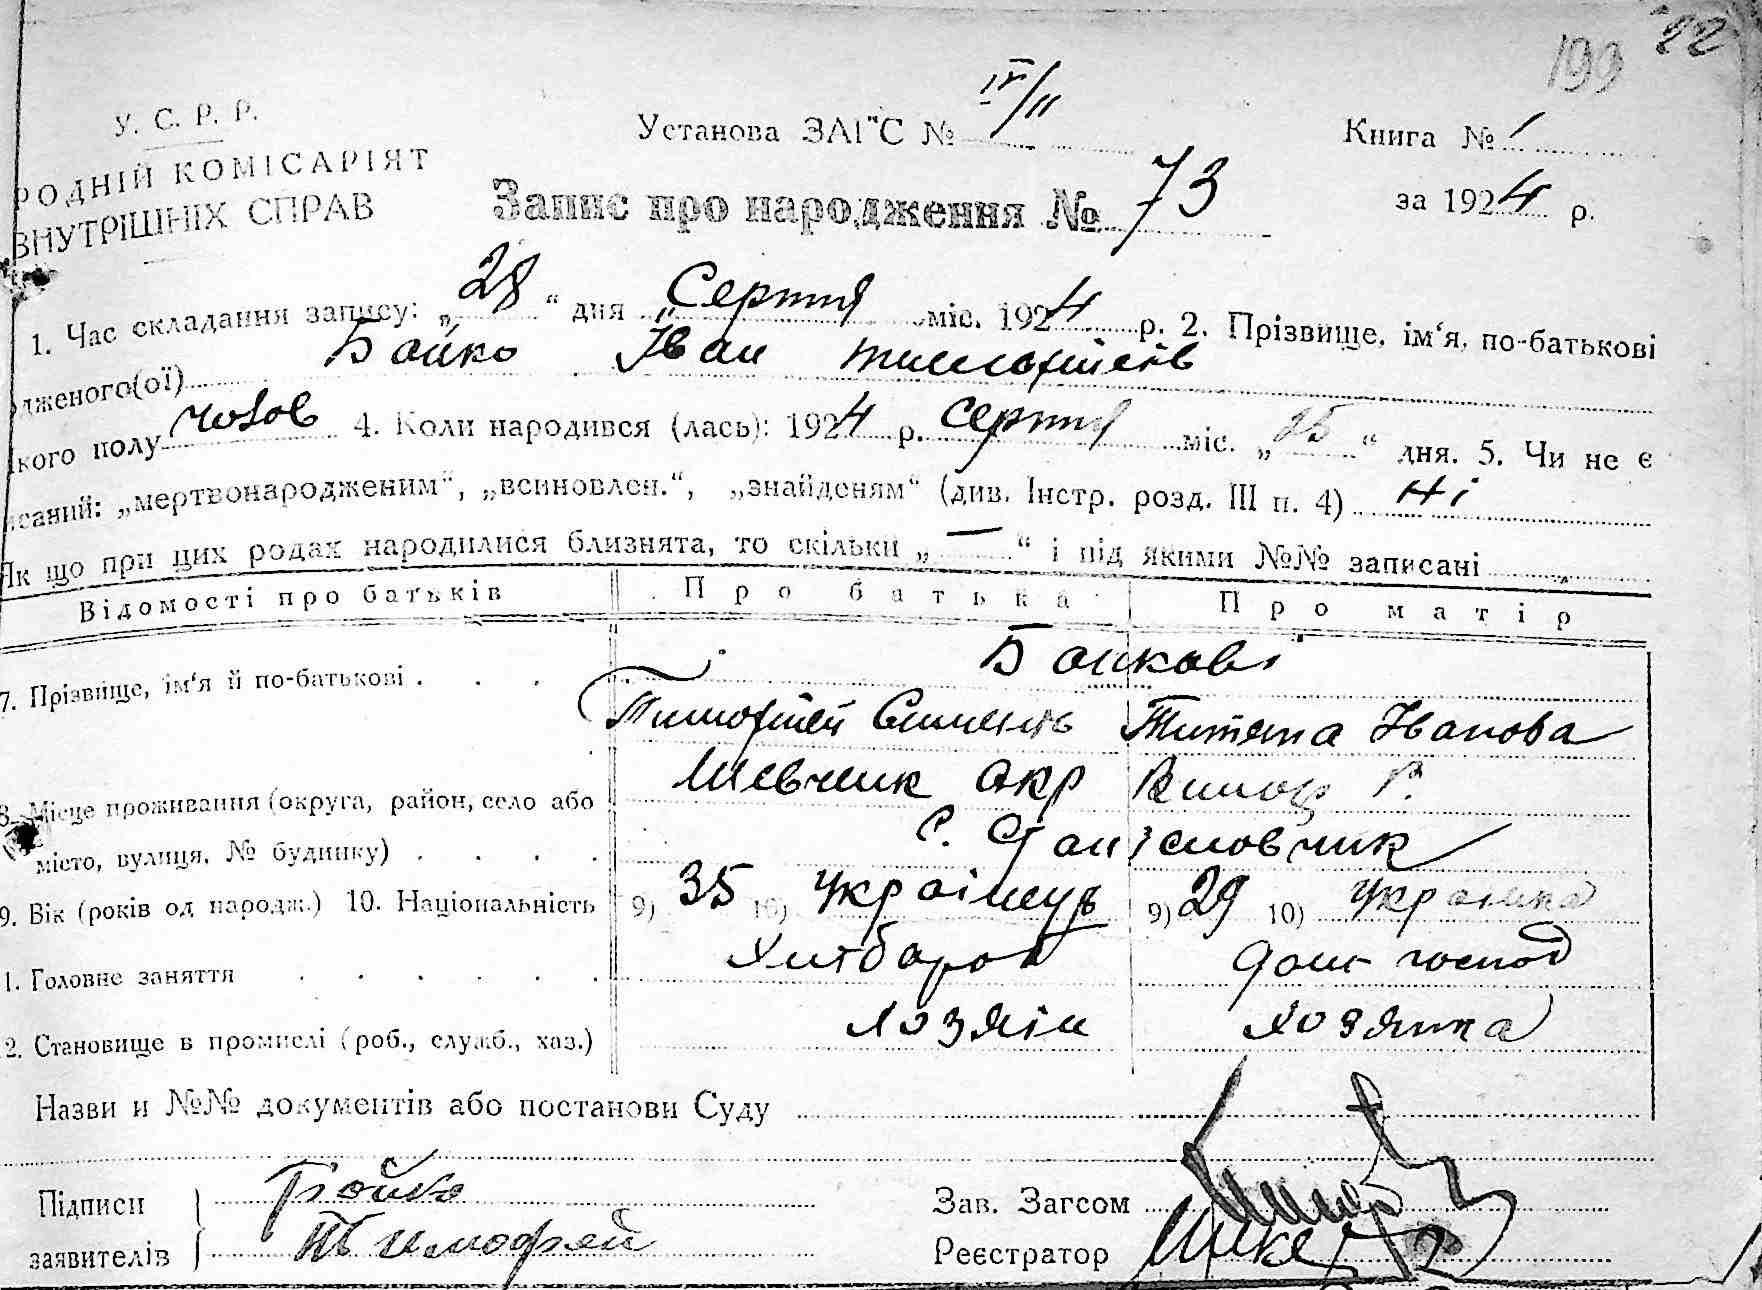 199 22
У. С. Р. Р.
РОДНІЙ КОМІСАРІЯТ
ВНУТРІШНІХ СПРАВ
Установа ЗАГ'С № IV/II
Книга № 1
Запис про народження № 73
за 1924 р.
1. Час складання запису: „28“ дня „Серпня міс. 1924 р. 2. Прізвище, ім‘я, по-батькові
дженого(ої) Бойко Іван Тимофіїв
кого полу чолов 4. Коли народився (лась): 1924 р. Серпня міс. „15“ дня. 5. Чи не є
исаний: „мертвонародженим“, „всиновлен.“, „знайденям“ (див. Інстр. розд. III п. 4) Ні
Як що при цих родах народилися близнята, то скільки „—“ і під якими №№ записані „
Відомості про батьків Про батька Про матір
7. Прізвище, ім‘я й по-батькові . . . Бойкові
Тимофій Семенів Титяна Іванова
8. Місце проживання (округа, район, село або Шевченк окр Р.
місто, вулиця, № будинку) . . . . с.
9. Вік (років од народж.) 10. Національність 9) 35 10) Українець 9) 29 10) Українка
1. Головне заняття . . . . . Хлібороб дом господ
2. Становище в промислі (роб., служб., хаз.) Хозяїн Хозяйка
Назви и №№ документів або постанови Суду
Підписи Бойко
заявителів Тимофей
Зав. Загсом
Реєстратор